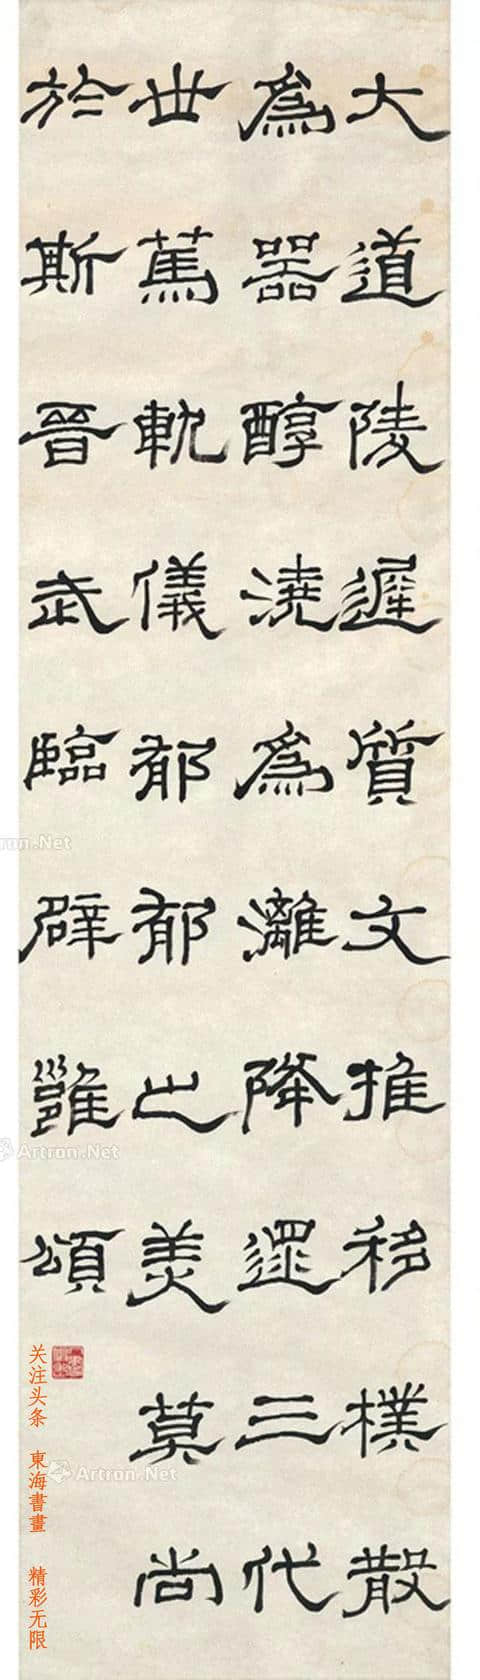 大道陵遲質文推移樸散
爲器醇澆爲灕降遝三代
世篤軌儀郁郁之美莫尚
於斯晉武臨辟雝頌
关注头条 東海書畫 精彩无限
Artron.Net
Artron.Net
tron.Net